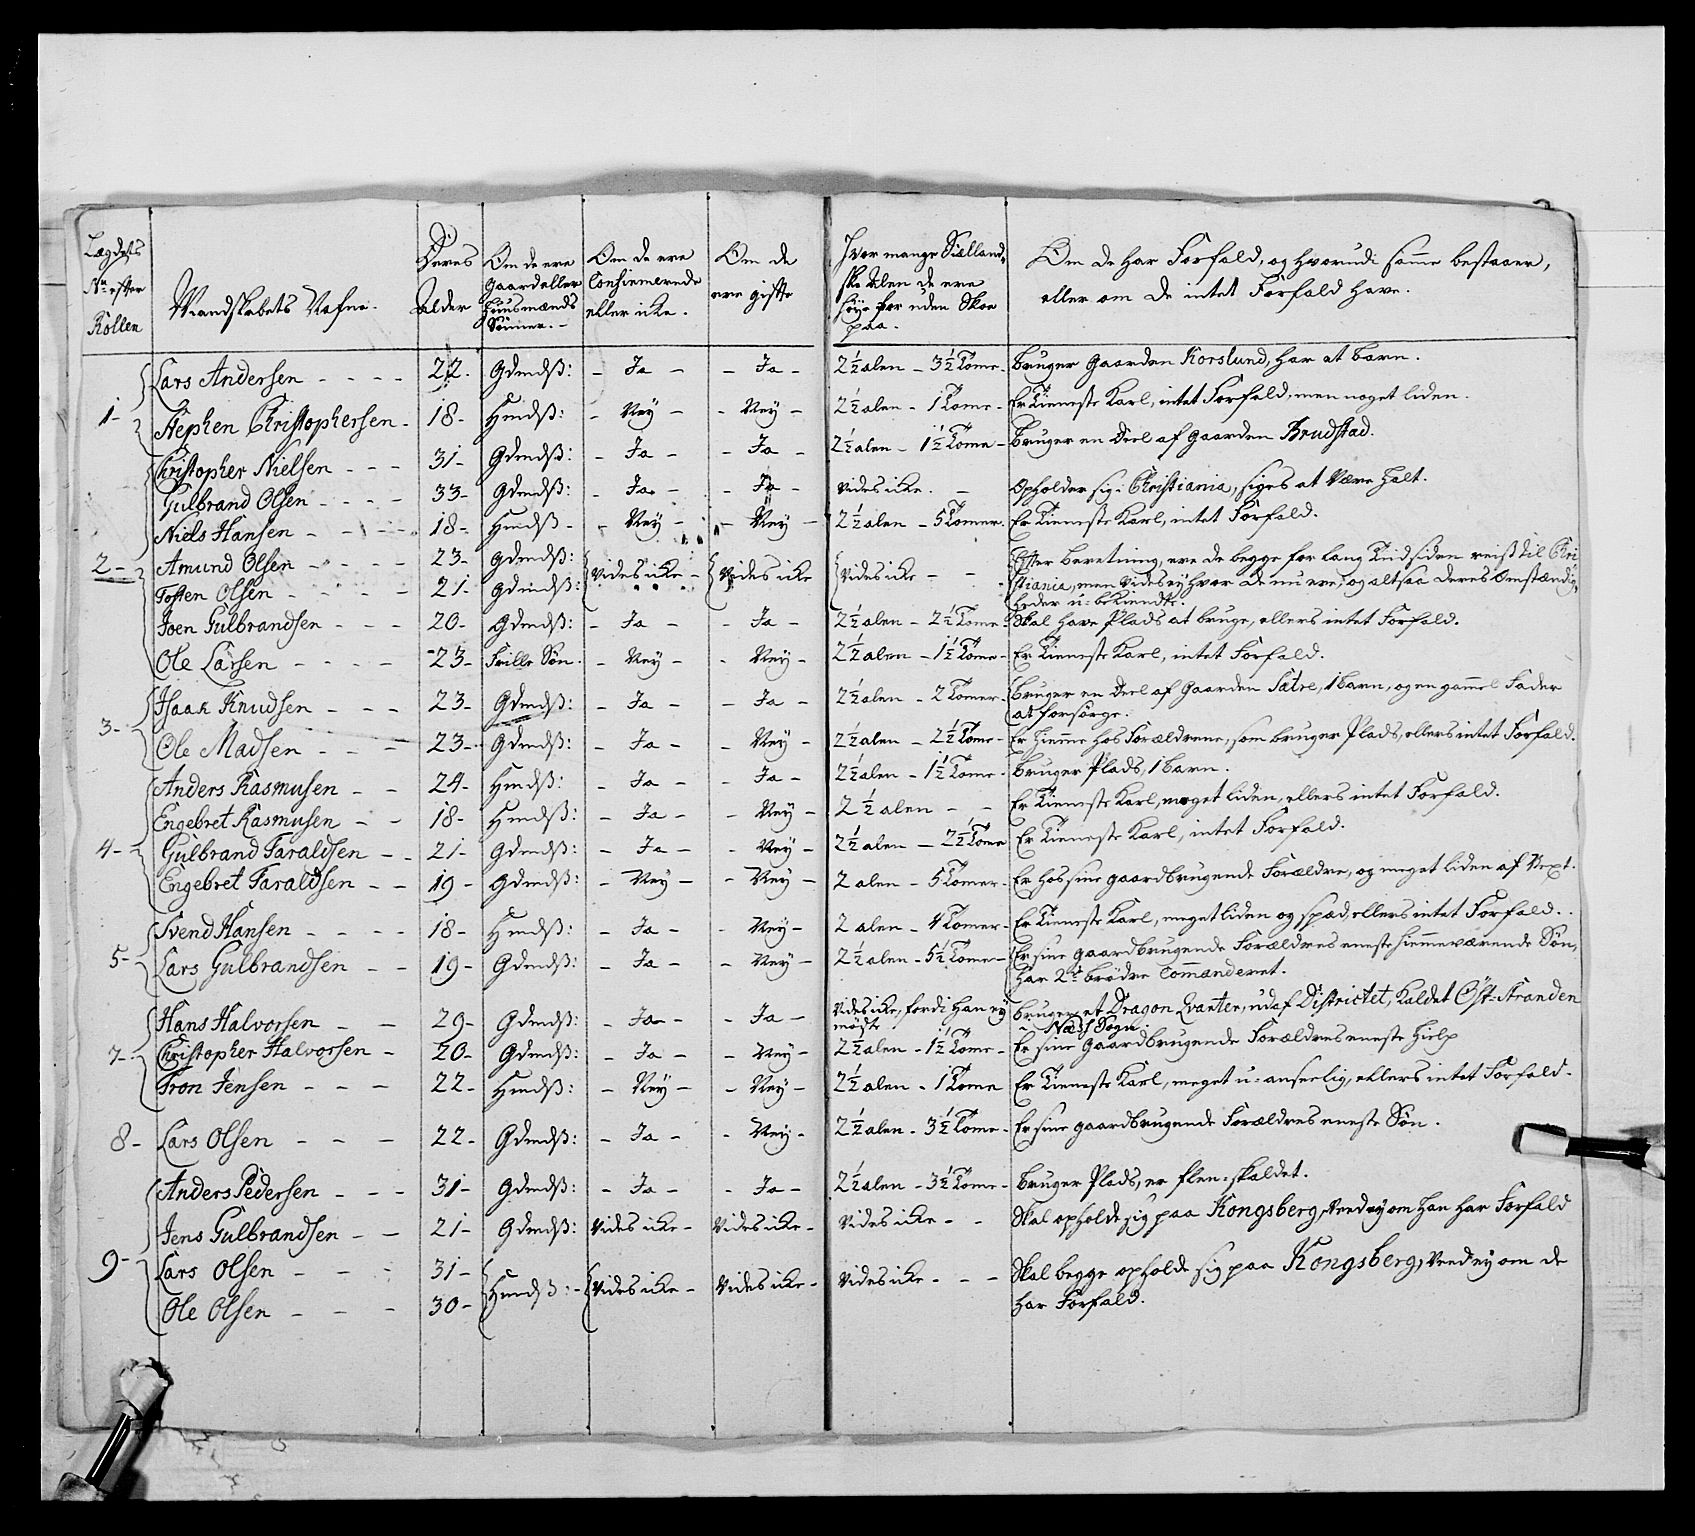 Lægdets
No efter
Rollen
Mandskabets Nafne.
Deres
Alder
Om de ere
Gaard eller
Huusmænds
Sønner.
Om de ere
Confirmerede
eller icke.
Om de
ere gifte
Hvor mange Siælland-
ske Alen de ere
høye for uden Skoe
paa.
Om de har Forfald, og hvorudi samme bestaaer,
eller om de intet Forfald have.
1- Lars Andersen - - - - 22. Gdmdß: - Ja - - Ja - 2½ alen - 3½ Tome - Bruger Gaarden Korslund, har at barn.
Stephen Christophersen - 18- Hmdß: - Ney - - Ney - 2½ alen - 1 Tome - Er Tieneste Karl, intet Forfald, men noget liden.
Christopher Nielsen - - - 31- Gdmdß: - Ja - - Ja - 2½ alen - 1½ Tome - Bruger en Deel af Gaarden Brudstad.
Gulbrand Olsen - - - 33- Gdmdß: - Ja - - Ja - Vides icke. - Opholder sig i Christiania, siges at være halt.
Niels Hansen - - - - 18- Hmdß - - Ney - - Ney - 2½ alen - 5 Tomer. Er Tieneste Karl, intet Forfald.
2- Amund Olsen - - - - 23- Gdmdß: Vides icke - Vides icke Vides icke - - Efter beretning, ere de begge for lang Tiid siden reist til Chri-
Tosten Olsen - - - - 21- Gdmdß: stiania, men vides ey hvor de nu ere, og altsaa deres Omstændig-
heder u-bekiendte.
Joen Gulbrandsen - - - 20- Gdmdß: - Ja - - Ja - 2½ alen - 2½ Tome Skal have Plads at bruge, ellers intet Forfald.
Ole Larsen - - - - 23- Frille Søn. - Ney - - Ney - 2½ alen - 1½ Tome - Er Tieneste Karl, intet Forfald.
3- Isaak Knudsen - - - 23- Gdmdß: - Ja - - Ja - 2½ alen - 2 Tomer. Bruger en Deel af Gaarden Sætre, 1 barn, og en gammel Fader
at forsørge.
Ole Madsen - - - 23- Gdmdß: - Ja - - Ney - 2½ alen - 2½ Tome - Er hiemme hos Forældrene, som bruger Plads, ellers intet Forfald.
4- Anders Rasmusen - - 24- Hmdß: - Ja - - Ja - 2½ alen - 1½ Tome - Bruger Plads, 1 barn.
Engebret Rasmusen - - 18- Hmdß: - Ja - - Ney - 2½ alen - - Er Tieneste Karl, meget liden, ellers intet Forfald.
Gulbrand Taraldsen - - 21- Gdmdß: - Ja - - Ney - 2½ alen - 2½ Tome Er Tieneste Karl, intet Forfald.
Engebret Taraldsen - - 19- Gdmdß: - Ney - - Ney - 2 alen - 5 Tomer - Er hos sine gaardbrugende Forældre, og meget liden af Vext.
5- Svend Hansen - - - - 18- Hmdß: - Ja - - Ney - 2 alen - 4 Tomer - Er Tieneste Karl, meget liden og spæd, ellers intet Forfald.
Lars Gulbrandsen - - 19- Gdmdß: - Ja - - Ney - 2½ alen - 5½ Tome - Er sine gaardbrugende Forældres eneste hiemmeværende Søn,
har 2de brødre Commanderet.
7- Hans Halvorsen - - 29- Gdmdß: - Ja - - Ja - Vides icke, fordi han ey
mødte Bruger et Dragon Qvarteer, udaf Districtet, kaldet Øst-Stranden
i Næss Sogn
Christopher Halvorsen - 20- Gdmdß: - Ja - - Ney - 2½ alen - 1½ Tome - Er sine Gaardbrugende Forældres eneste hielp
Tron Jensen - - - 22- Hmdß: - Ney - - Ney - 2½ alen - 1 Tome Er Tieneste Karl, meget u-anseelig, ellers intet Forfald.
8- Lars Olsen - - - 22- Gdmdß: - Ja - - Ney - 2½ alen - 3½ Tome - Er sine gaardbrugende Forældres eneste Søn.
9- Anders Pedersen - - - 31- Gdmdß: - Ja - - Ja - 2½ alen - 3½ Tome - Bruger Plads, er flen-skaldet.
Jens Gulbrandsen - - 21- Gdmdß: Vides icke - Vides icke - Vides icke - - Skal opholde sig paa Kongsberg, veed ey om han har Forfald
Lars Olsen - - - 31- Hmdß: - Vides icke - Vides icke - Vides icke - - - Skal begge opholde sig paa Kongsberg, veed ey om de
Ole Olsen - - - 30- har Forfald.